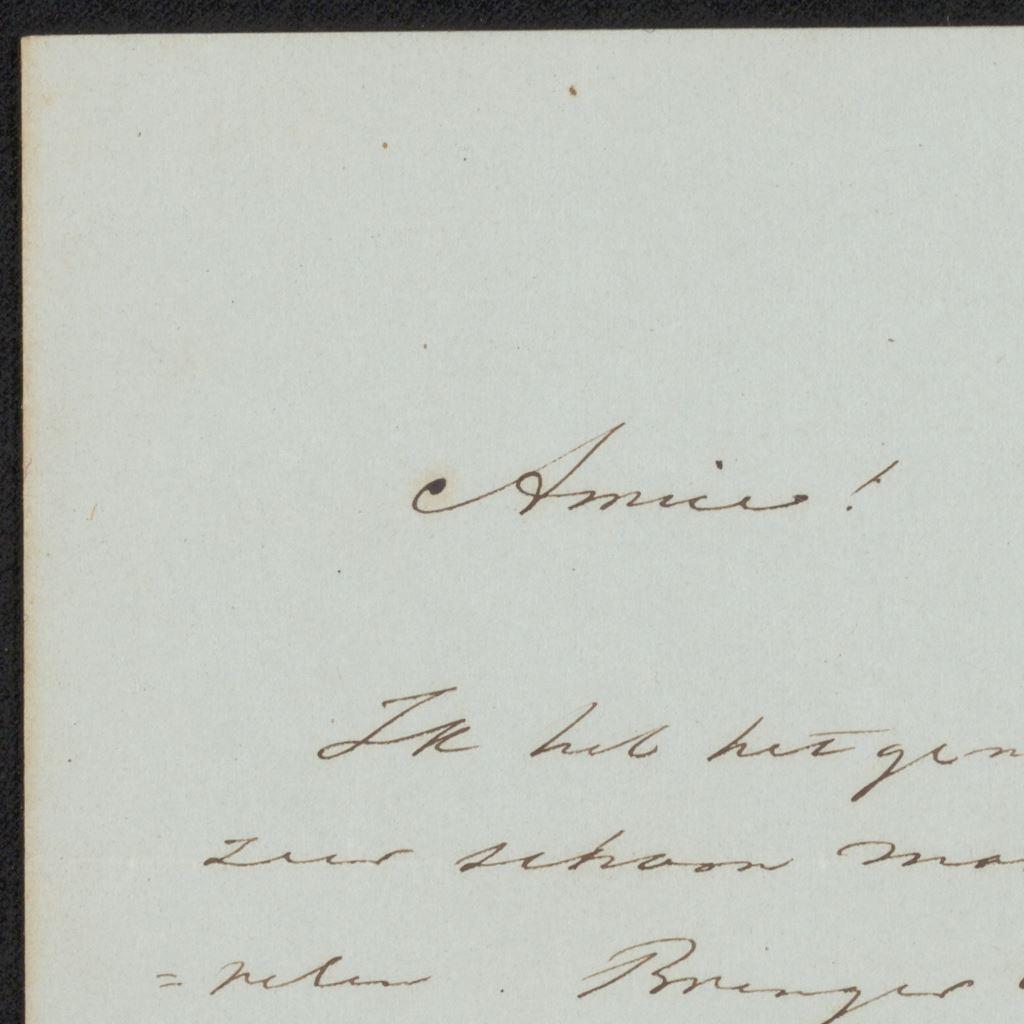 Amice!
Ik heb het gen
zeer schoon ma
= velen. Brenger